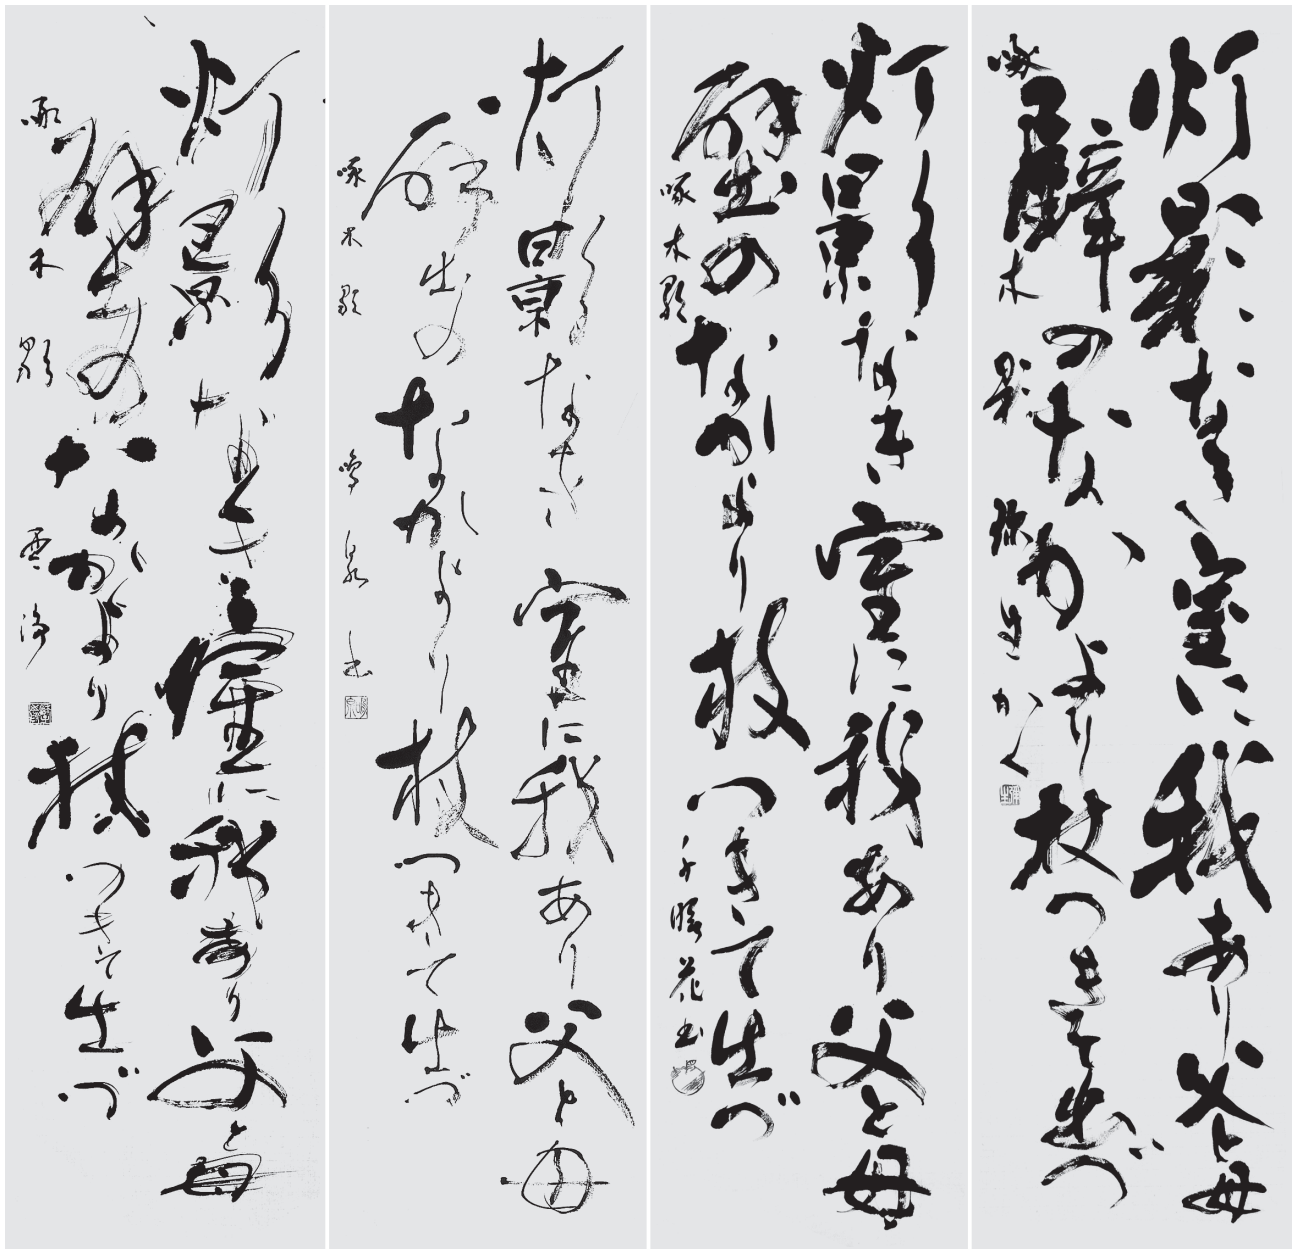 灯影なき室に我あり父と母
壁のなかより杖つきて出づ
啄木歌 弥生かく
灯影なき室に我あり父と母
壁のなかより杖つきて出づ
啄木歌
灯影なき室に我あり父と母
壁のなかより杖つきて出づ
啄木歌 鳴泉書
灯影なき室に我あり父と母
壁のなかより杖つきて出づ
啄木歌